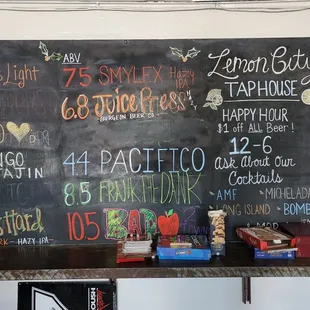 s Light
ABV
75 SMYLEX Hazy IPA
6.8 Juice Press
BURGEON BEER CO.
NGO
TAJIN
44 PACIFICO
8.5 FRANK THE DANK
Hard
HAZY IPA
105 BOBA
Lemon City
TAPHOUSE
HAPPY HOUR
$1 off ALL Beer!
12-6
Ask About Our
Cocktails
-AMF
-MICHELADA
LONG ISLAND
-BOMB